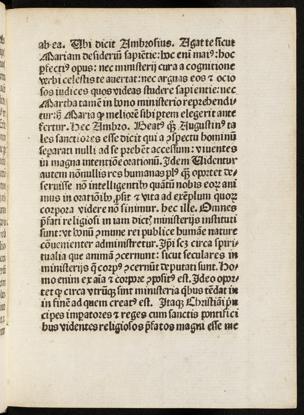 ab ea. Ubi dicit Ambrosius. Agat te sicut
Mariam desideriū sapiētie: hoc eni maiꝰ: hoc
ꝑfectiꝰ opus: nec ministerij cura a cognitione
verbi celestis te auertat: nec arguas eos ⁊ ocio
sos iudices quos videas studere sapientie: nec
Martha tamē in bono ministerio reprehendi
tur: sꝫ Maria ꝙ meliorē sibi ptem elegerit ante
fertur. Hec Ambro. Beatꝰ qꝫ Augustinꝰ ta
les sanctiores esse dicit qui a ꝯspectu hominū
separati nulli ad se prebēt accessum: viuentes
in magna intentiōe orationū. Idem Videntur
autem nōnullis res humanas plꝰ qꝫ oportet de-
seruisse nō intelligentibꝰ quātū nobis eorꝝ ani
mus in oratiōibꝰ ꝓsit ⁊ vita ad exēplum quorꝝ
corpora videre nō sinimur. hec ille. Omnes
p̄fati religiosi in iam dictꝭ ministerijs instituti
sunt: vt bonū ꝯmune rei publice humāe nature
cōuenienter administretur. Ipi scꝫ circa spiri-
tualia que animā ꝯcernunt: sicut seculares in
ministerijs q̄ corpꝰ ꝯcernūt deputati sunt. Ho-
mo enim ex aīa ⁊ corpore ꝯpositꝰ est. Ideo opor-
tet ꝙ circa vtrūqꝫ sint ministeria qͥbus tēdat in
in finē ad quem creatꝰ est. Itaqꝫ Christiāi p̄n
cipes impatores ⁊ reges cum sanctis pontifici
bus videntes religiosos p̄fatos magni esse me